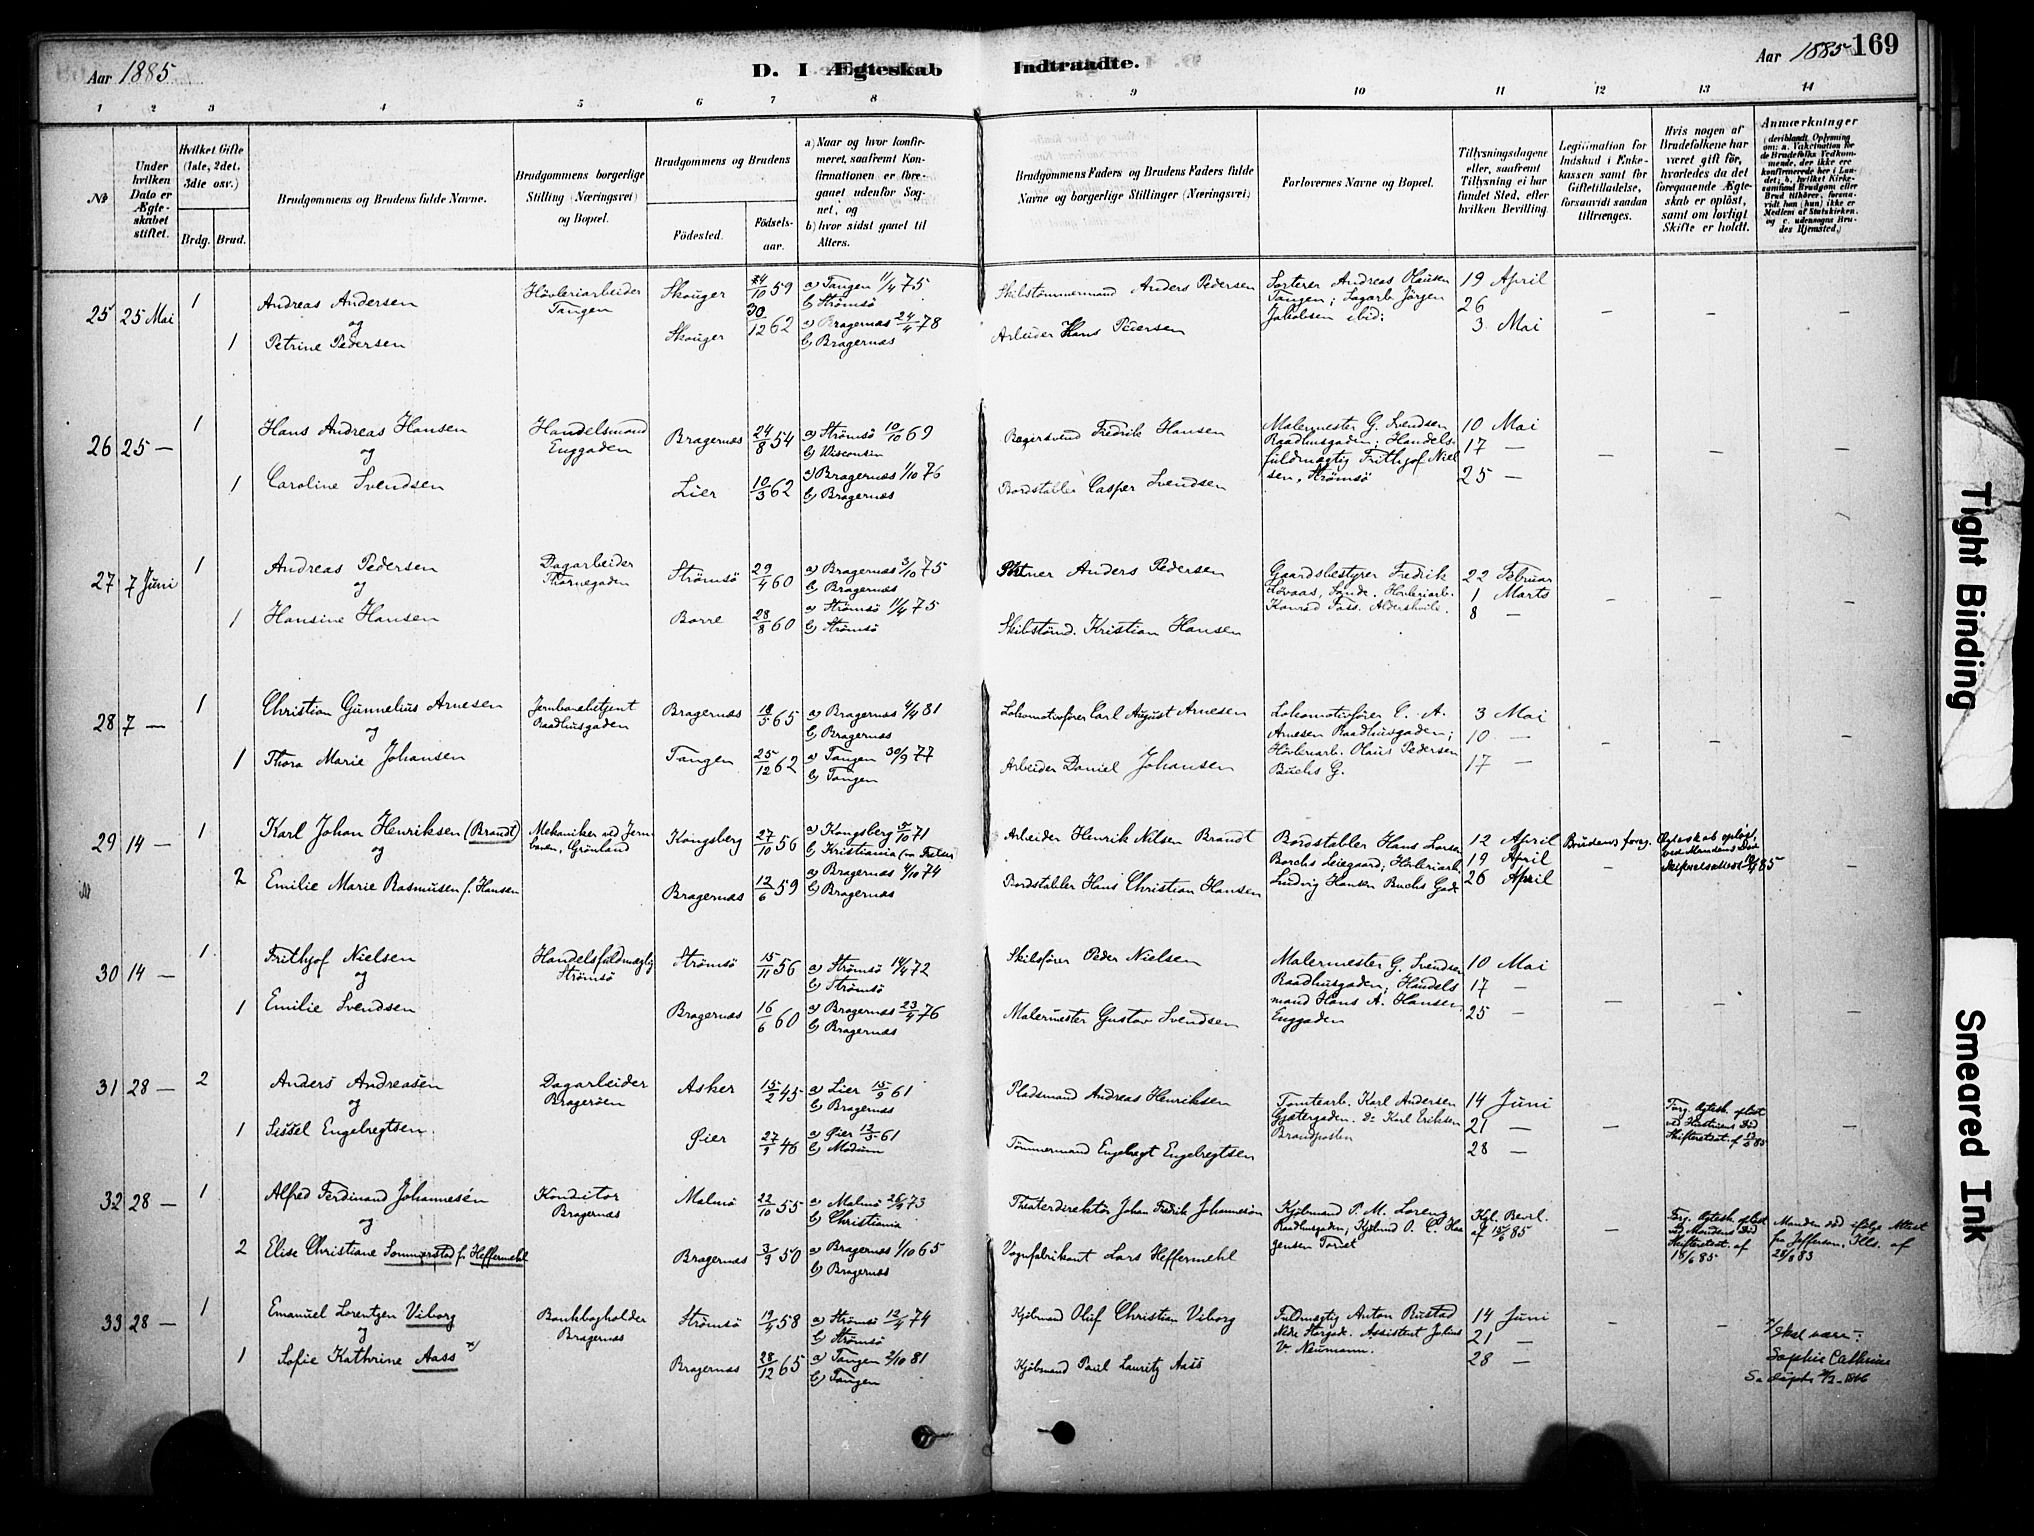 Aar 1885
D. I Ægteskab Indtraadte.
Aar 1885 169
1 2 3 4 5 6 7 8 9 10 11 12 13 14
№
Under hvilken Dato er Ægteskabet stiftet.
Hvilket Gifte (1ste, 2det, 3die osv.)
Brdg. Brud.
Brudgommens og Brudens fulde Navne.
Brudgommens borgerlige Stilling (Næringsvei) og Bopæl.
Brudgommens og Brudens
Fødested. Fødselsaar.
a) Naar og hvor konfirmeret, saafremt Konfirmationen er foregaaet udenfor Sognet, og
b) hvor sidst gaaet til Alters.
Brudgommens Faders og Brudens Faders fulde Navne og borgerlige Stillinger (Næringsvei)
Forlovernes Navne og Bopæl.
Tillysningsdagene eller, saafremt Tillysning ei har fundet Sted, efter hvilken Bevilling.
Legitimation for Indskud i Enkekassen samt for Giftetilladelse, forsaavidt saadan tiltrænges.
Hvis nogen af Brudefolkene har været gift før, hvorledes da det foregaaende Ægteskab er opløst, samt om lovligt Skifte er holdt.
Anmærkninger
(deriblandt Oplysning om: a. Vakcination for de Brudefolks Vedkommende, der ikke ere konfirmerede her i Landet; b. hvilket Kirkesamfund Brudgom eller Brud tilhører, forsaavidt han (hun) ikke er Medlem af Statskirken, og c. udensogns Brudes Hjemsted.)
25 25 Mai 1 Andreas Andersen Høvleriarbeider Tangen Skouger 24/10 59 a) Tangen 11/4 75 b) Strømsø Skibstømmermand Anders Pedersen Sorterer Andreas Olausen Tangen; Sagarb. Jørgen Jakobsen ibid: 19 April 26 3 Mai
og
1 Petrine Pedersen Skouger 30/12 62 a) Bragernæs 24/4 78 b) Bragernæs Arbeider Hans Pedersen
26 25 — 1 Hans Andreas Hansen Handelsmand Enggaden Bragernæs 24/8 54 a) Strømsø 10/10 69 b) Wisconsin Fredrik Hansen Malermester G. Svendsen Raadhusgaden; Handelsfuldmægtig Frithjof Nielsen, Strømsø 10 Mai 17 — 25 —
og
1 Caroline Svendsen Lier 10/3 62 a) Bragernæs 1/10 76 b) Bragernæs Bordstabler Casper Svendsen
27 7 Juni 1 Andreas Pedersen Dagarbeider Thornegaden Strømsø 29/4 60 a) Bragernæs 3/10 75 b) Bragernæs Anders Pedersen Gaardsbestyrer Fredrik Løvaas, Sande. Høvleriarb. Konrad Foss. Aldershvile. 22 Februar 1 Marts 8 —
og
1 Hansine Hansen Borre 28/8 60 a) Strømsø 11/4 75 b) Strømsø Skibstømd. Kristian Hansen
28 7 — 1 Christian Gunnelius Arnesen Jernbanebetjent Raadhusgaden Bragernæs 18/5 65 a) Bragernæs 4/4 81 b) Bragernæs Lokomotivfører Carl August Arnesen Lokomotivfører C. A. Arnesen Raadhusgaden; Høvleriarb. Olaus Pedersen Buchs G. 3 Mai 10 — 17 —
og
1 Thora Marie Johansen Tangen 25/12 62 a) Tangen 30/9 77 b) Tangen Arbeider Daniel Johansen
29 14 — 1 Karl Johan Henriksen (Brandt) Mekaniker ved Jernbanen, Grønland Kongsberg 27/10 56 a) Kongsberg 5/10 71 b) Kristiania Arbeider Henrik Nilsen Brandt Bordstabler Hans Larsen Borchs Leiegaard; Høvleriarb. Ludvig Hansen Buchs Gade 12 April 19 April 26 April Brudens foreg. Ægteskab opløst ved Mandens Død
og
2 Emilie Marie Rasmusen f. Hansen Bragernæs 12/6 59 a) Bragernæs 4/10 74 b) Bragernæs Bordstabler Hans Christian Hansen
30 14 — 1 Frithjof Nielsen Handelsfuldmægtig Strømsø Strømsø 15/11 56 a) Strømsø 14/4 72 b) Strømsø Skibsfører Peder Nielsen Malermester G. Svendsen Raadhusgaden; Handelsmand Hans A. Hansen, Enggaden 10 Mai 17 — 25 —
og
1 Emilie Svendsen Bragernæs 16/6 60 a) Bragernæs 23/4 76 b) Bragernæs Malermester Gustav Svendsen
31 28 — 2 Anders Andreasen Dagarbeider Bragerøen Asker 15/2 45 a) Lier 15/9 61 b) Bragernæs Pladsmand Andreas Henriksen Tomtearb. Karl Andersen Gjætergaden. Do Karl Eriksen Brandposten 14 Juni 21 — 28 — Forg. Ægtesk. opløst ved Hustruens Død Skifteattest af 13/6 85
og
1 Sissel Engelregtsen Øier 27/9 46 a) Øier 12/5 61 b) Modum Tømmermand Engelregt Engelregtsen
32 28 — 1 Alfred Ferdinand Johannesén Konditor Bragernæs Malmø 22/10 55 a) Malmø 26/4 73 b) Christiania Theaterdirektør Johan Fredrik Johannesón Kjøbmand P. M. Lorens Raadhusgaden; Kjøbmd O. C. Haagensen Torvet Kgl. Bevil. af 15/6 85 Forg. Ægtesk. opløst ved Mandens Død Skifteattest af 18/6 85 Manden død ifølge Attest fra Jefferson, Ills. af 28/8 83
og
2 Elise Christiane Sommerstad f. Heffermehl Bragernæs 3/9 50 a) Bragernæs 1/10 65 b) Bragernæs Vognfabrikant Lars Heffermehl
33 28 — 1 Emanuel Lorentzen Viborg Bankbogholder Bragernæs Strømsø 19/4 58 a) Strømsø 12/4 74 b) Strømsø Kjøbmand Oluf Christian Viborg Fuldmægtig Anton Rustad Nedre Storgade. Assistent Julius V. Neumann. 14 Juni 21 — 28 — x/ skal være: Sophie Cathrine
og
1 Sofie Kathrine Aass x) Bragernæs 28/12 65 a) Tangen 2/10 81 b) Tangen Kjøbmand Paul Lauritz Aass
Tight Binding
Smeared Ink